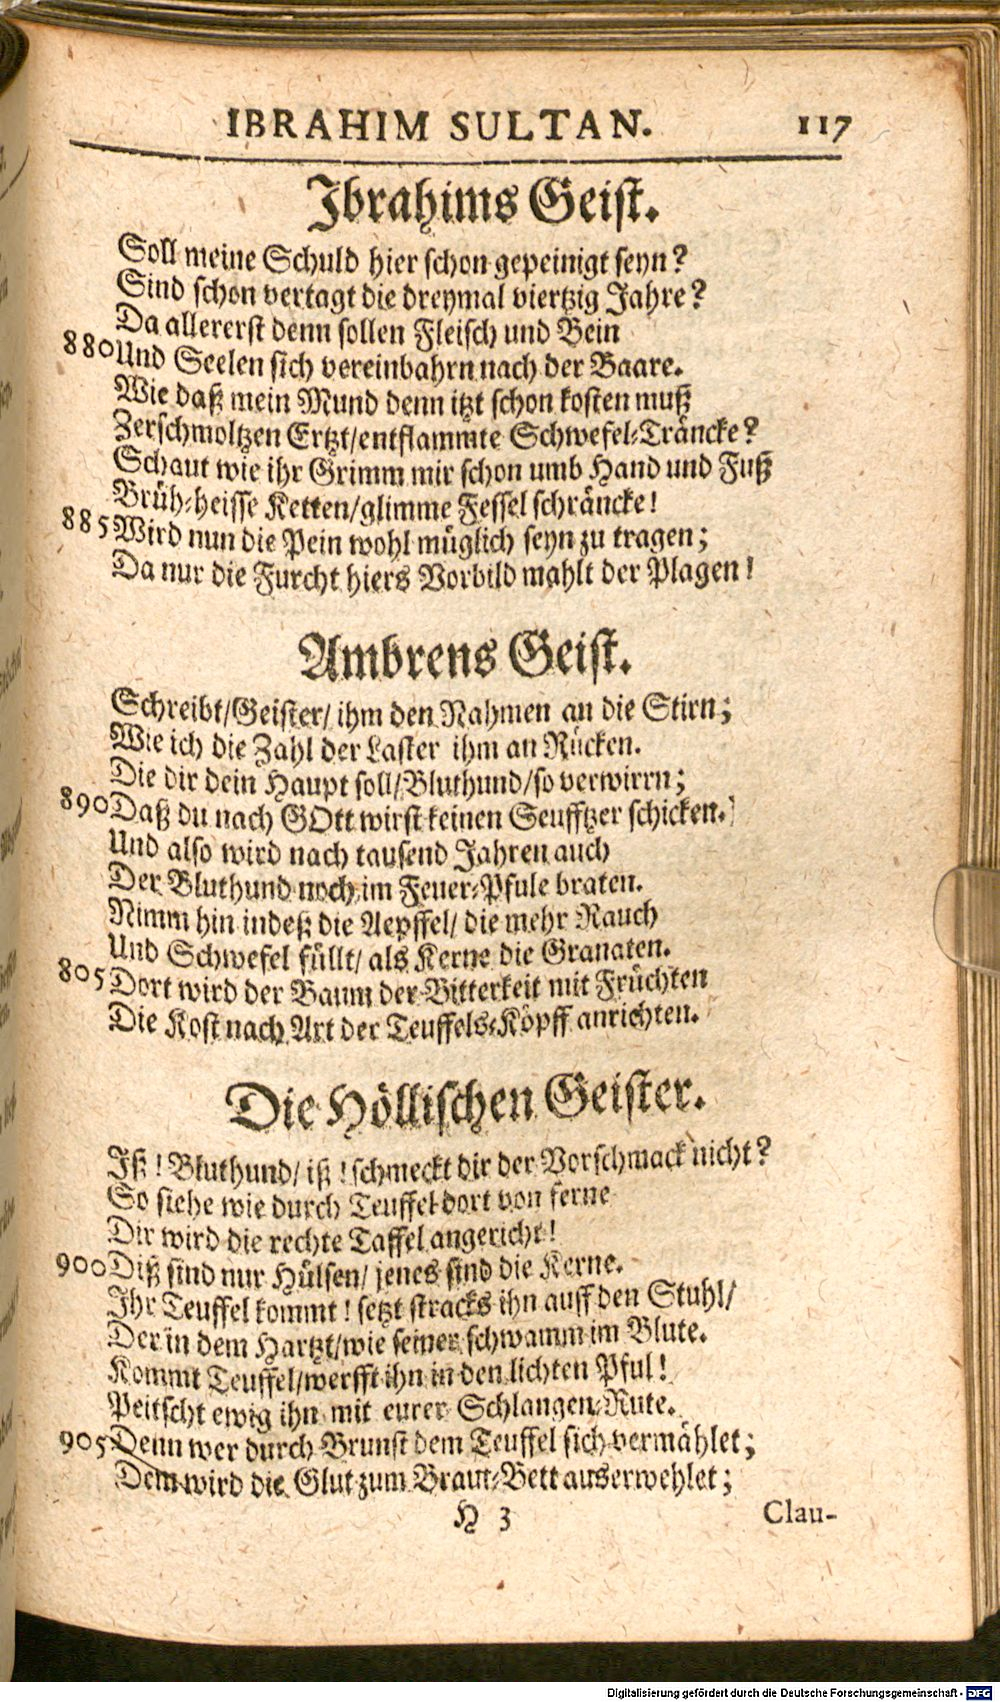 IBRAHIM SULTAN. 117
Ibrahims Geist.
Soll meine Schuld hier schon gepeinigt seyn?
Sind schon vertagt die dreymal viertzig Jahre?
Da allererst denn sollen Fleisch und Bein
880 Und Seelen sich vereinbahrn nach der Baare.
Wie daß mein Mund denn itzt schon kosten muß
Zerschmoltzen Ertzt/entflammte Schwefel-Träncke?
Schaut wie ihr Grimm mir schon umb Hand und Fuß
Brüh-heisse Ketten/glimme Fessel schräncke!
885 Wird nun die Pein wohl müglich seyn zu tragen;
Da nur die Furcht hiers Vorbild mahlt der Plagen!
Ambrens Geist.
Schreibt/Geister/ ihm den Nahmen an die Stirn;
Wie ich die Zahl der Laster ihm an Rücken.
Die dir dein Haupt soll/Bluthund/so verwirrn;
890 Daß du nach GOtt wirst keinen Seufftzer schicken.
Und also wird nach tausend Jahren auch
Der Bluthund noch im Feuer-Pfule braten.
Nimm hin indeß die Aepffel/ die mehr Rauch
Und Schwefel füllt/ als Kerne die Granaten.
805 Dort wird der Baum der Bitterkeit mit Früchten
Die Kost nach Art der Teuffels-Köpff anrichten.
Die Höllischen Geister.
Iß! Bluthund/ iß! schmeckt dir der Vorschmack nicht?
So siehe wie durch Teuffel dort von ferne
Dir wird die rechte Taffel angericht!
900 Diß sind nur Hülsen/ jenes sind die Kerne.
Ihr Teuffel kommt! setzt stracks ihn auff den Stuhl/
Der in dem Hartzt/wie seiner schwamm im Blute.
Kommt Teuffel/werfft ihn in den lichten Pful!
Peitscht ewig ihn mit eurer Schlangen-Rute.
905 Denn wer durch Brunst dem Teuffel sich vermählet;
Dem wird die Glut zum Braut-Bett auserwehlet;
H 3 Clau-
Digitalisierung gefördert durch die Deutsche Forschungsgemeinschaft - DFG